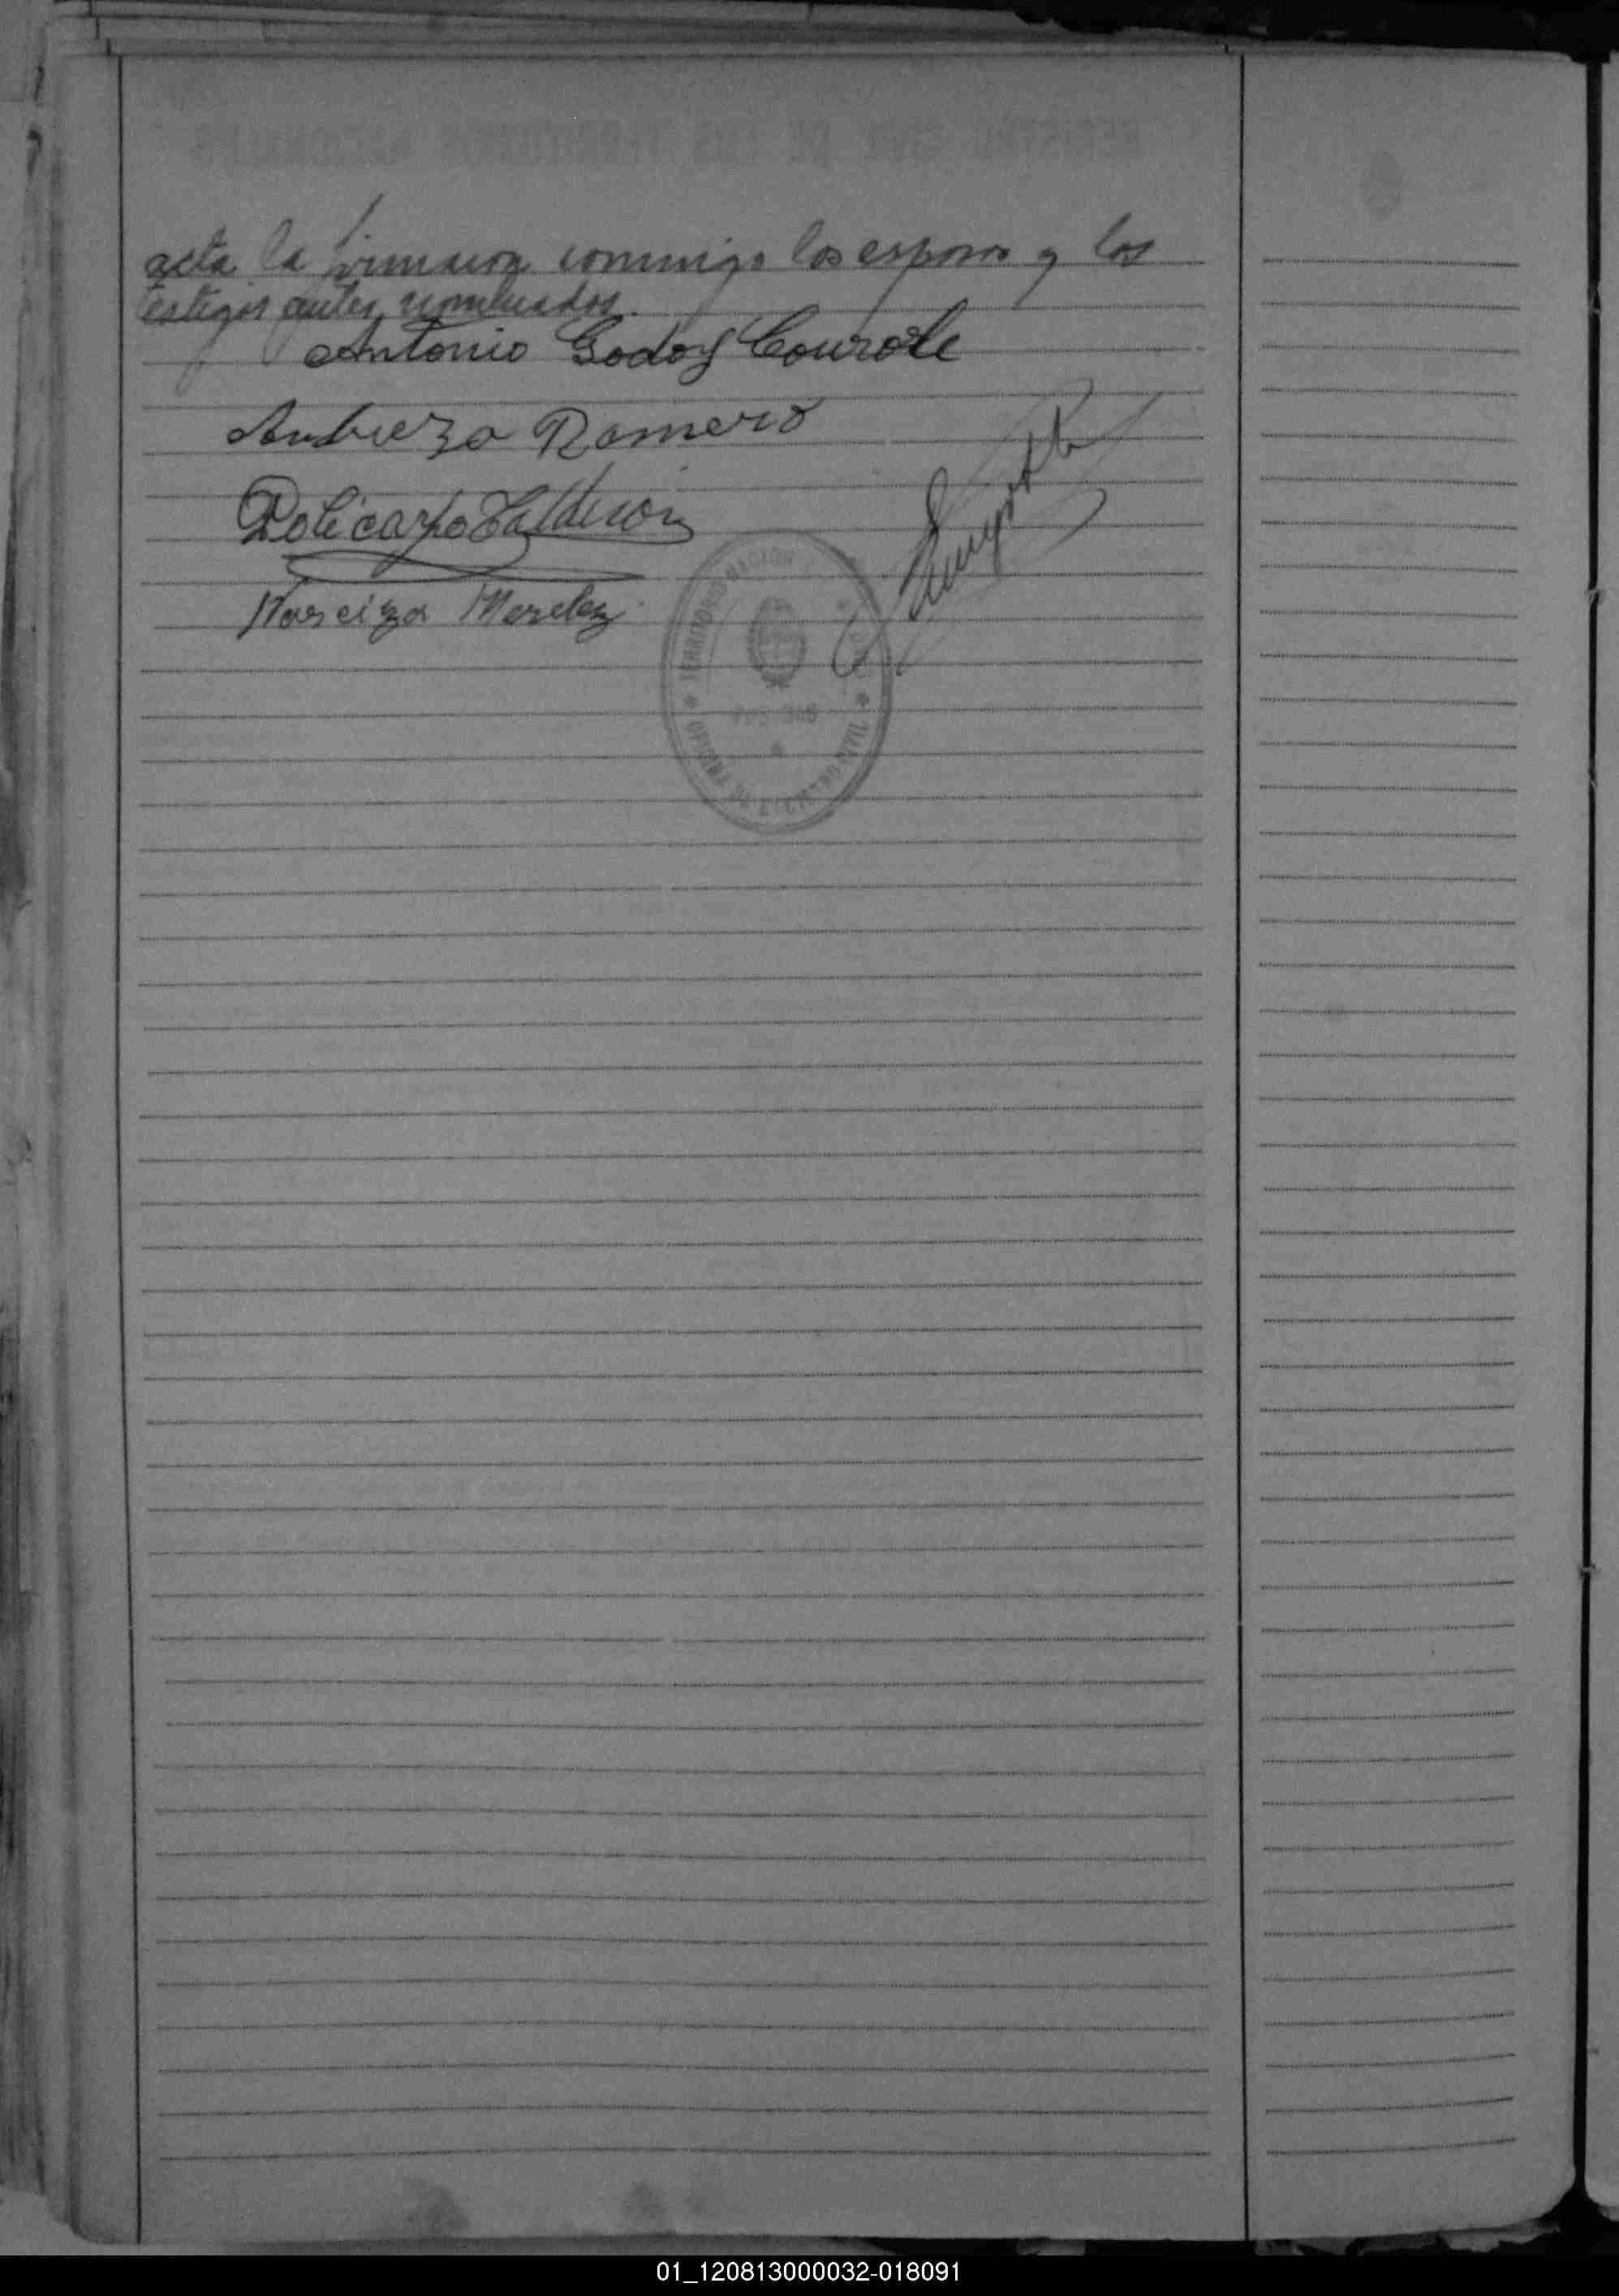 acta la firmaron conmigo los esposos y los
testigos antes nombrados.
Antonio Godoy Courole
Anbrezo Romero
Policarpo Calderon
Narciza Merelez
TERRITORIO NACION
01_120813000032-018091